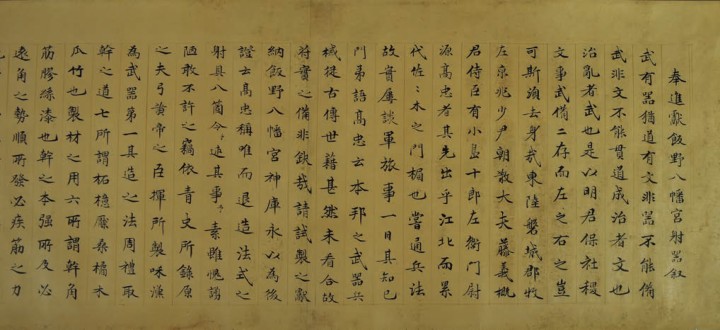 奉進獻飯野八幡宮射器叙
武有器猶道有文非器不能備
武非文不能貫道成治者文也
治亂者武也是以明君保社稷
文事武備二存而左之右之豈
可斯須去身哉東陸磐城郡牧
左京兆少尹朝散大夫藤義概
君侍臣有小嶌十郎左衛門尉
源高忠者其先出乎江北而累
代佐々木之門楣也嘗通兵法
故實屢談軍旅事一日具知己
門弟語高忠云本邦之武器兵
械從古傳世籍甚然未看合故
實之備非鈌哉請試製之獻
納飯野八幡宮神庫永以為後
證士高忠稱唯而退造法式之
射具八箇今述其事素雖愧謭
陋敢不許之竊依青史所錄原
之夫弓黄帝之臣揮所製
為武器第一具造之法周禮取
幹之道七所謂柘檍檿桑橘木
瓜竹也製材之用六所謂幹角
筋膠絲漆也幹之本强所及必
遠角之勢順所發必疾筋之力